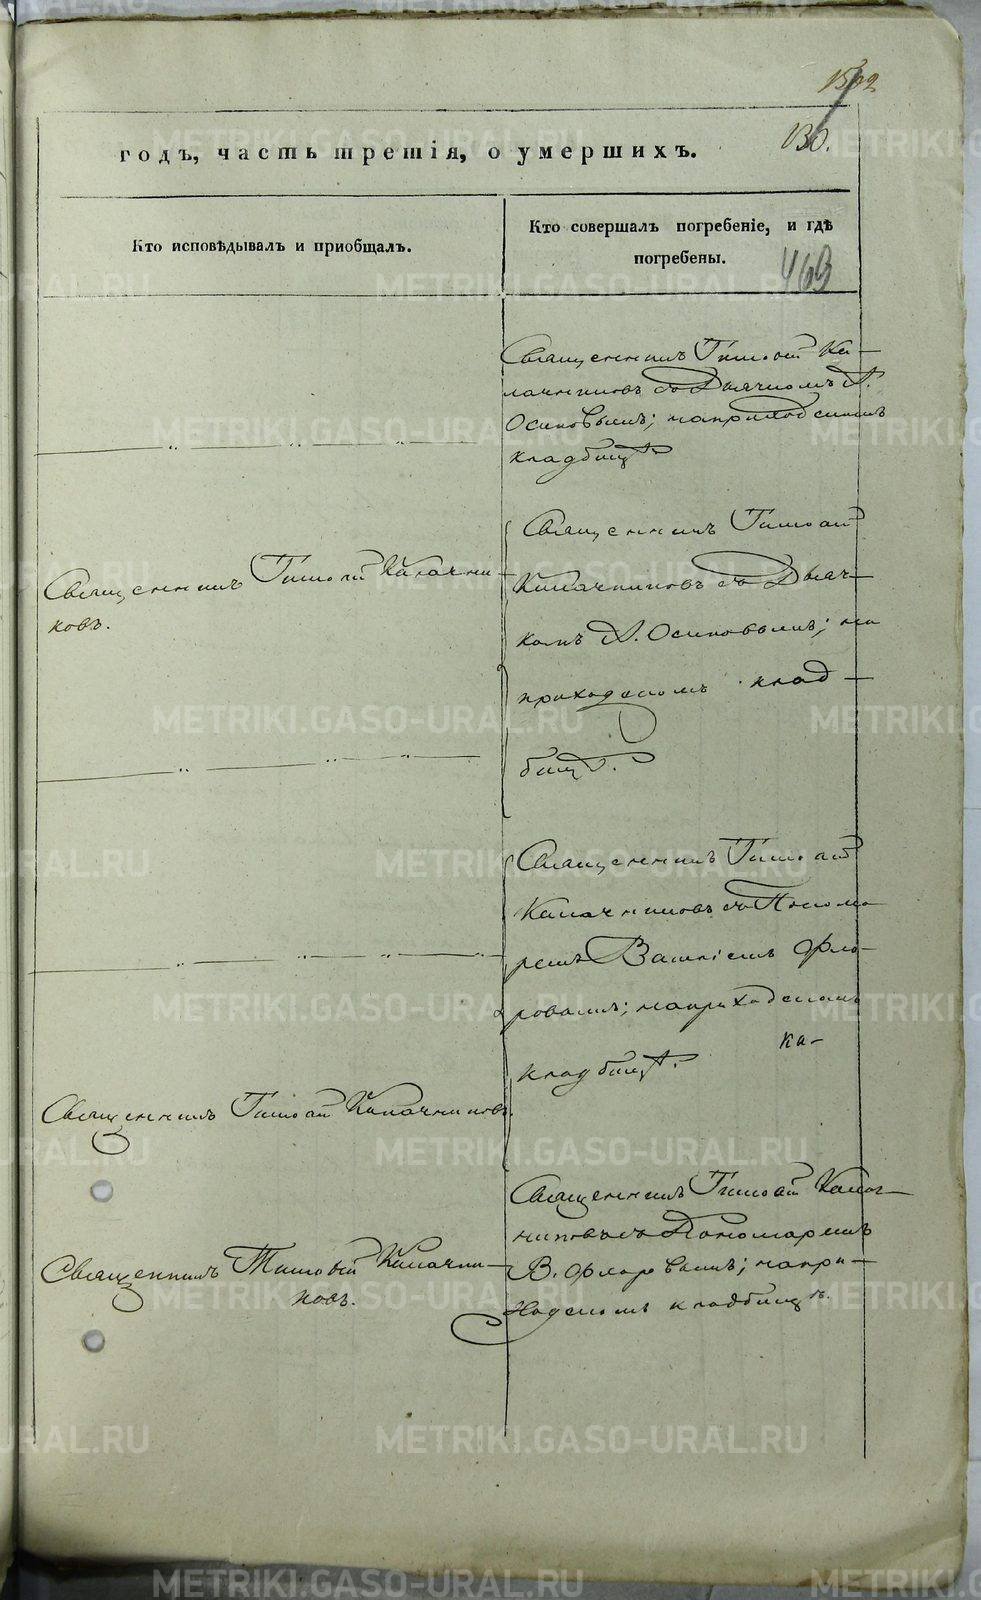 1502
130.
годъ, часть третія, о умершихъ.
Кто исповѣдывалъ и приобщалъ.
Кто совершалъ погребеніе, и гдѣ
погребены.
469
Священникъ Тимоѳей Ка-
лачниковъ съ Дьячкомъ А.
Осиповымъ; на приходскомъ
кладбищѣ.
Священникъ Тимоѳей Калачни-
ковъ.
Священникъ Тимоѳей
Калачниковъ съ Дьяч-
комъ А. Осиповымъ; на
приходскомъ клад-
бищѣ.
Священникъ Тимоѳей
Калачниковъ съ Понома-
ремъ Фло-
ровымъ; на приходскомъ
кладбищѣ.
Священникъ Тимоѳей Калачниковъ.
Священникъ Тимоѳей Калач-
никовъ съ Пономаремъ
В. Флоровымъ; на при-
ходскомъ кладбищѣ.
Священникъ Тимоѳей Калачни-
ковъ.
METRIKI.GASO-URAL.RU